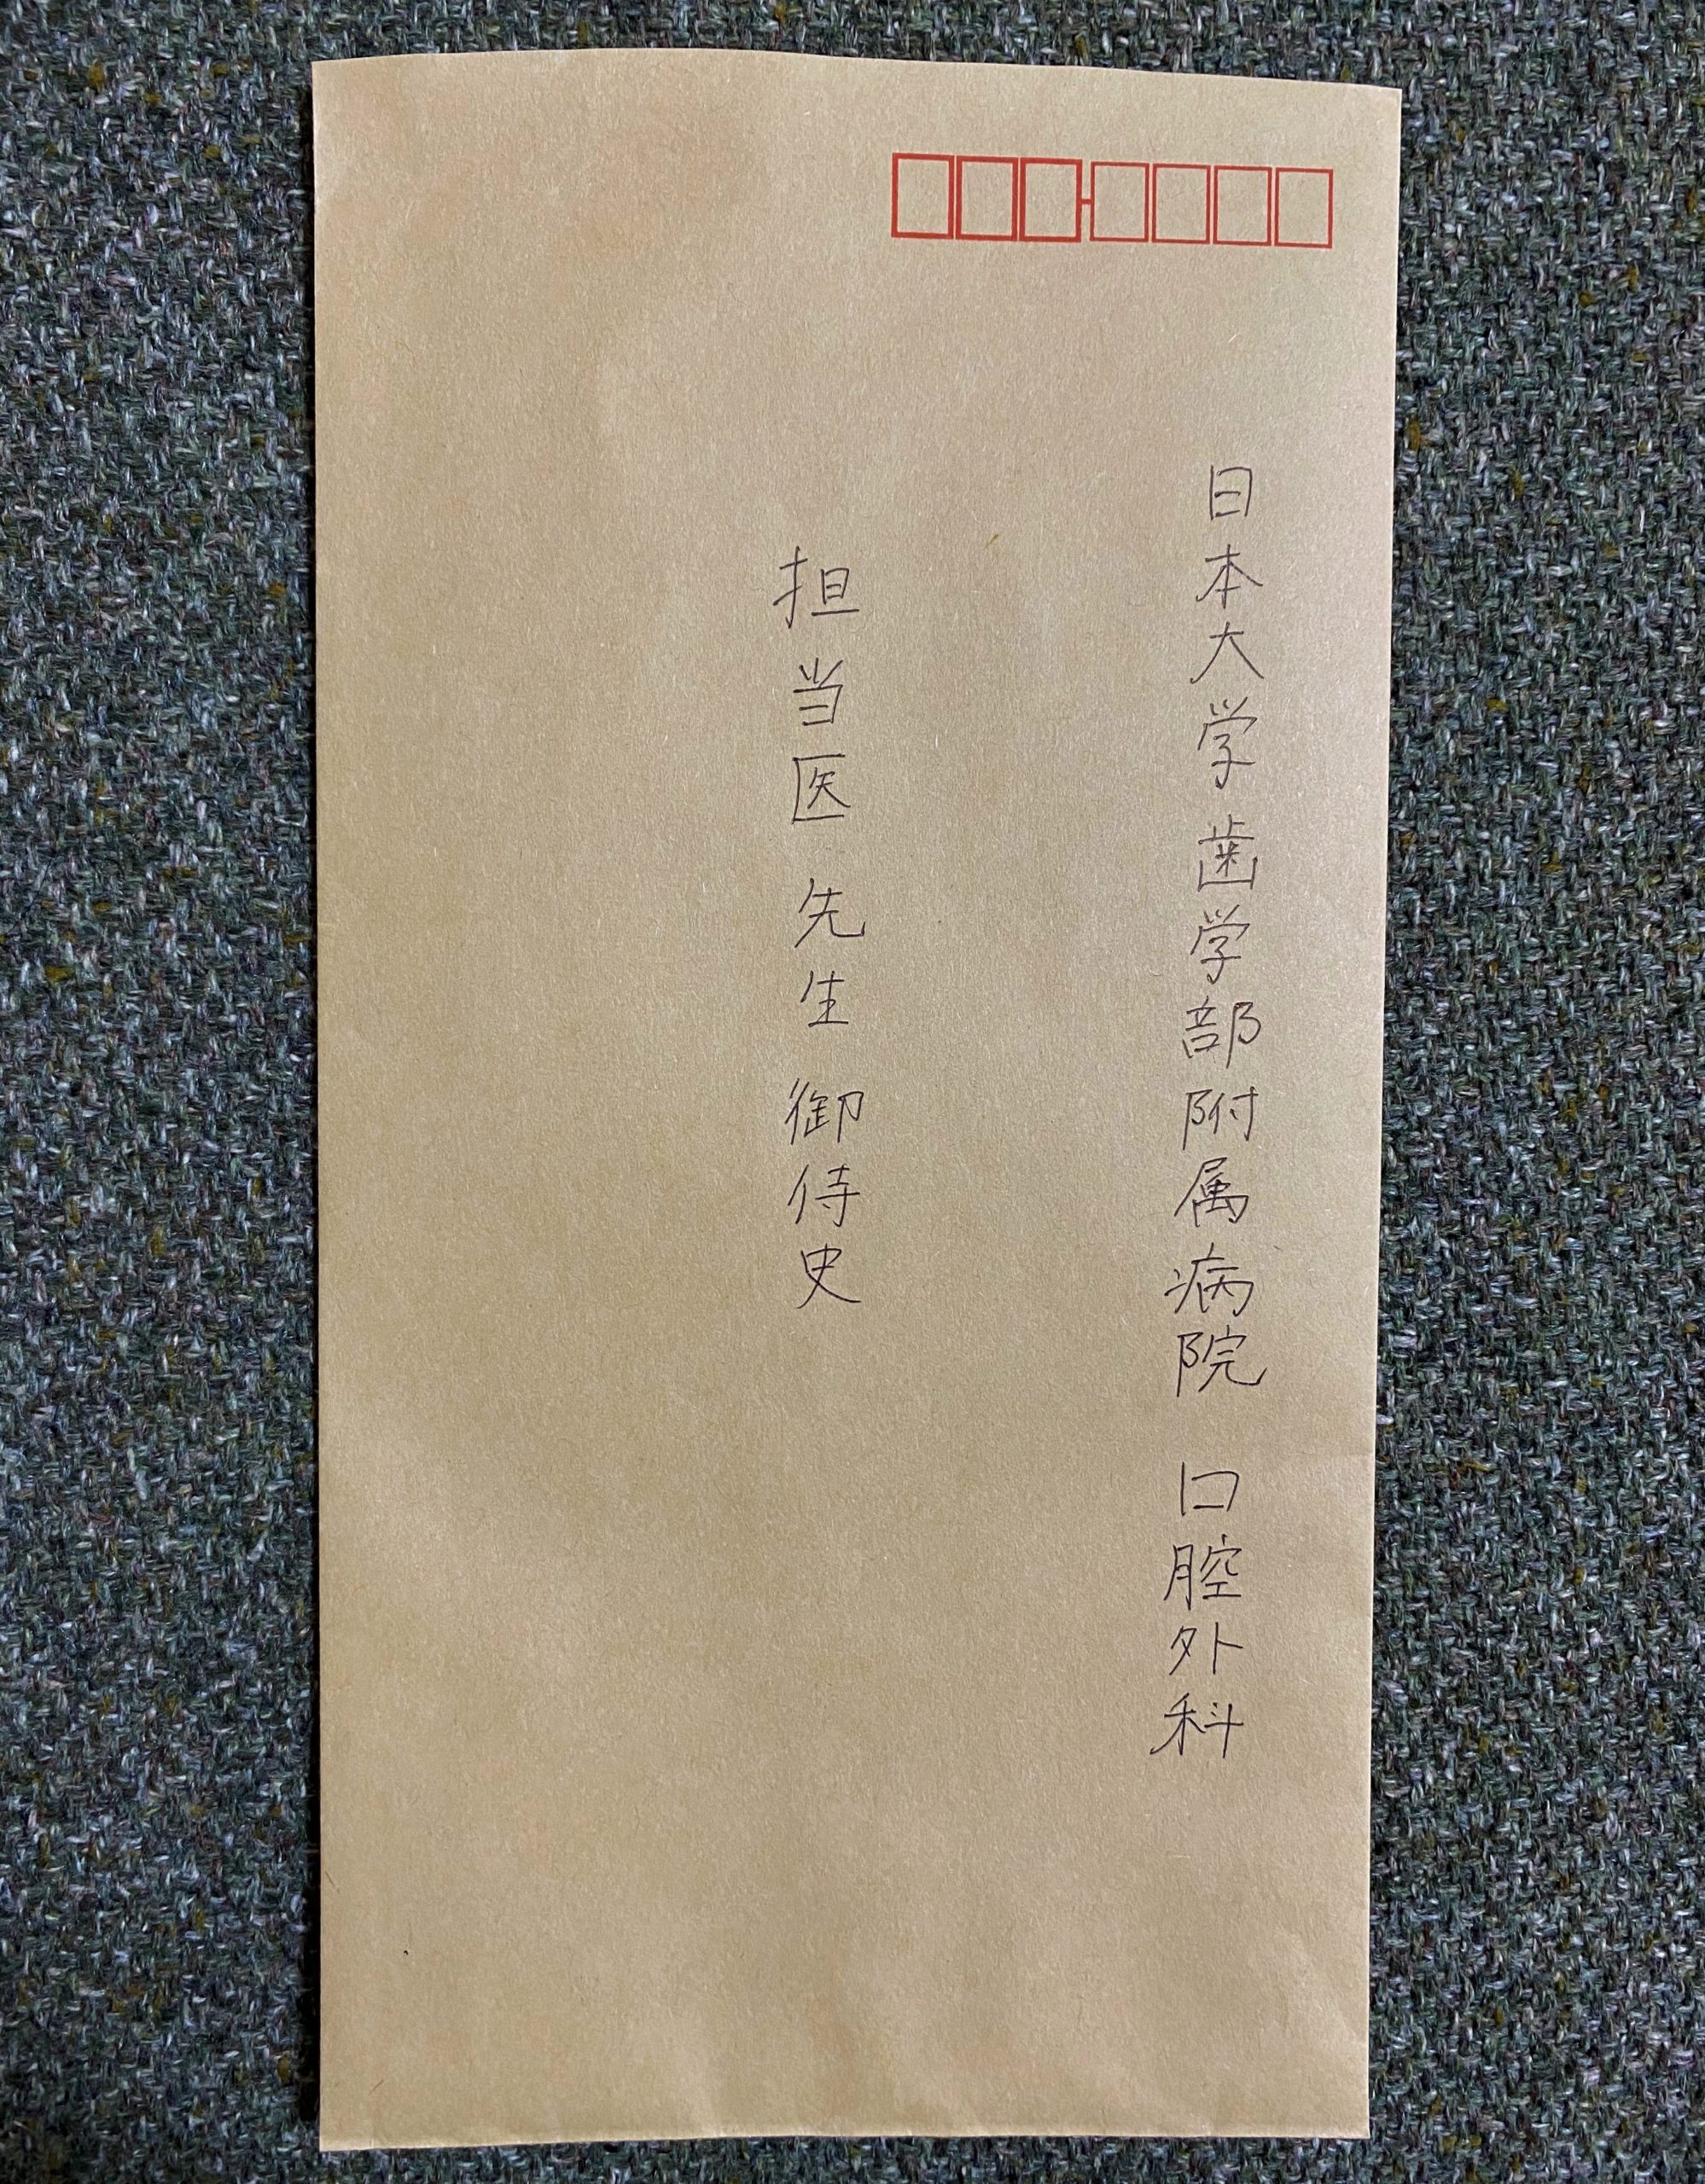 日本大学歯学部附属病院 口腔外科
担当医 先生 御侍史